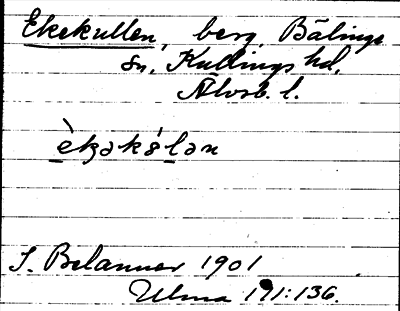 Ekekullen, berg, Bälinge
sn, Kullings hd,
Älvsb. l.
S. Belanner 1901
Ulma 191:136.